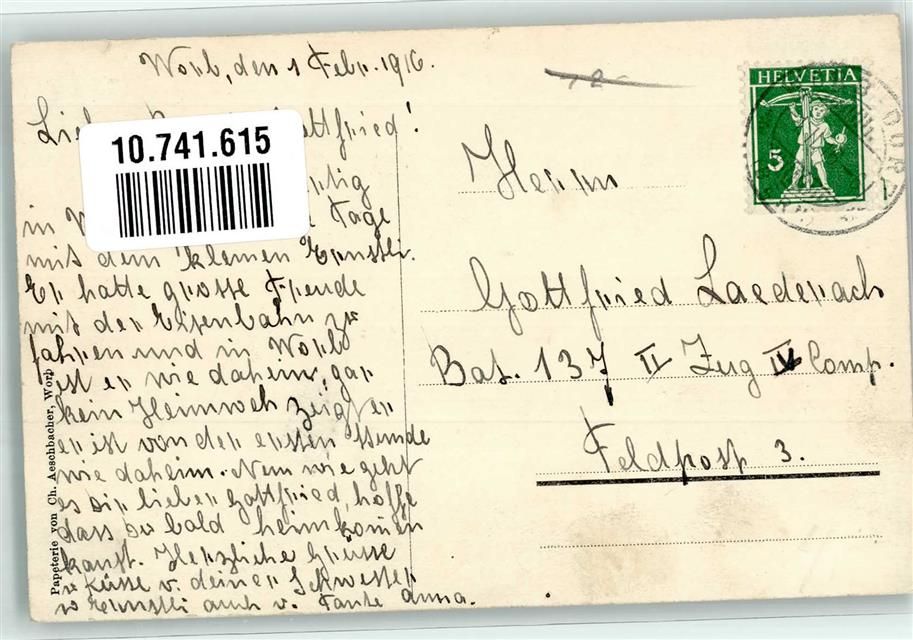 Worb, den 1 Febr. 1916.
Gottfried!
10.741.615
in
Tage
mit dem kleinen Ernstli.
Er hatte grosse Freude
mit der Eisenbahn zu
fahren und in Worb
ist er wie daheim, gar
kein Heimweh zeigt er
er ist von der ersten Stunde
wie daheim. Nun wie geht
es dir lieber Gottfried, hoffe
dass du bald heimkomen
kanst. Herzliche Grüsse
u Küsse v. deiner Schwester
u Ernstli auch v. Tante Anna.
Papeterie von Ch. Aeschbacher, Worb
HELVETIA
5
Herrn
Gottfried Laederach
Bat. 137 II Zug IV Comp.
Feldpost 3.